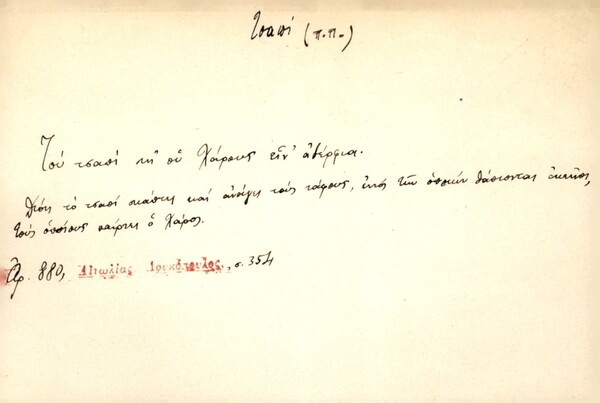 Τσαπί (π.π.)
Τού τσαπί κὴ οὑ Χάρους εἶν' ἀδέρφια.
Διότι τὸ τσαπί σκάπτει καί ἀνοίγει τούς τάφους, ἐντὸς τῶν ὁποίων θάπτονται ἐκεῖνοι,
τοὺς ὁποίους παίρνει ὁ Χάρος.
Ἀρ. 880, Αἰτωλίας Λουκόπουλος, σ. 354